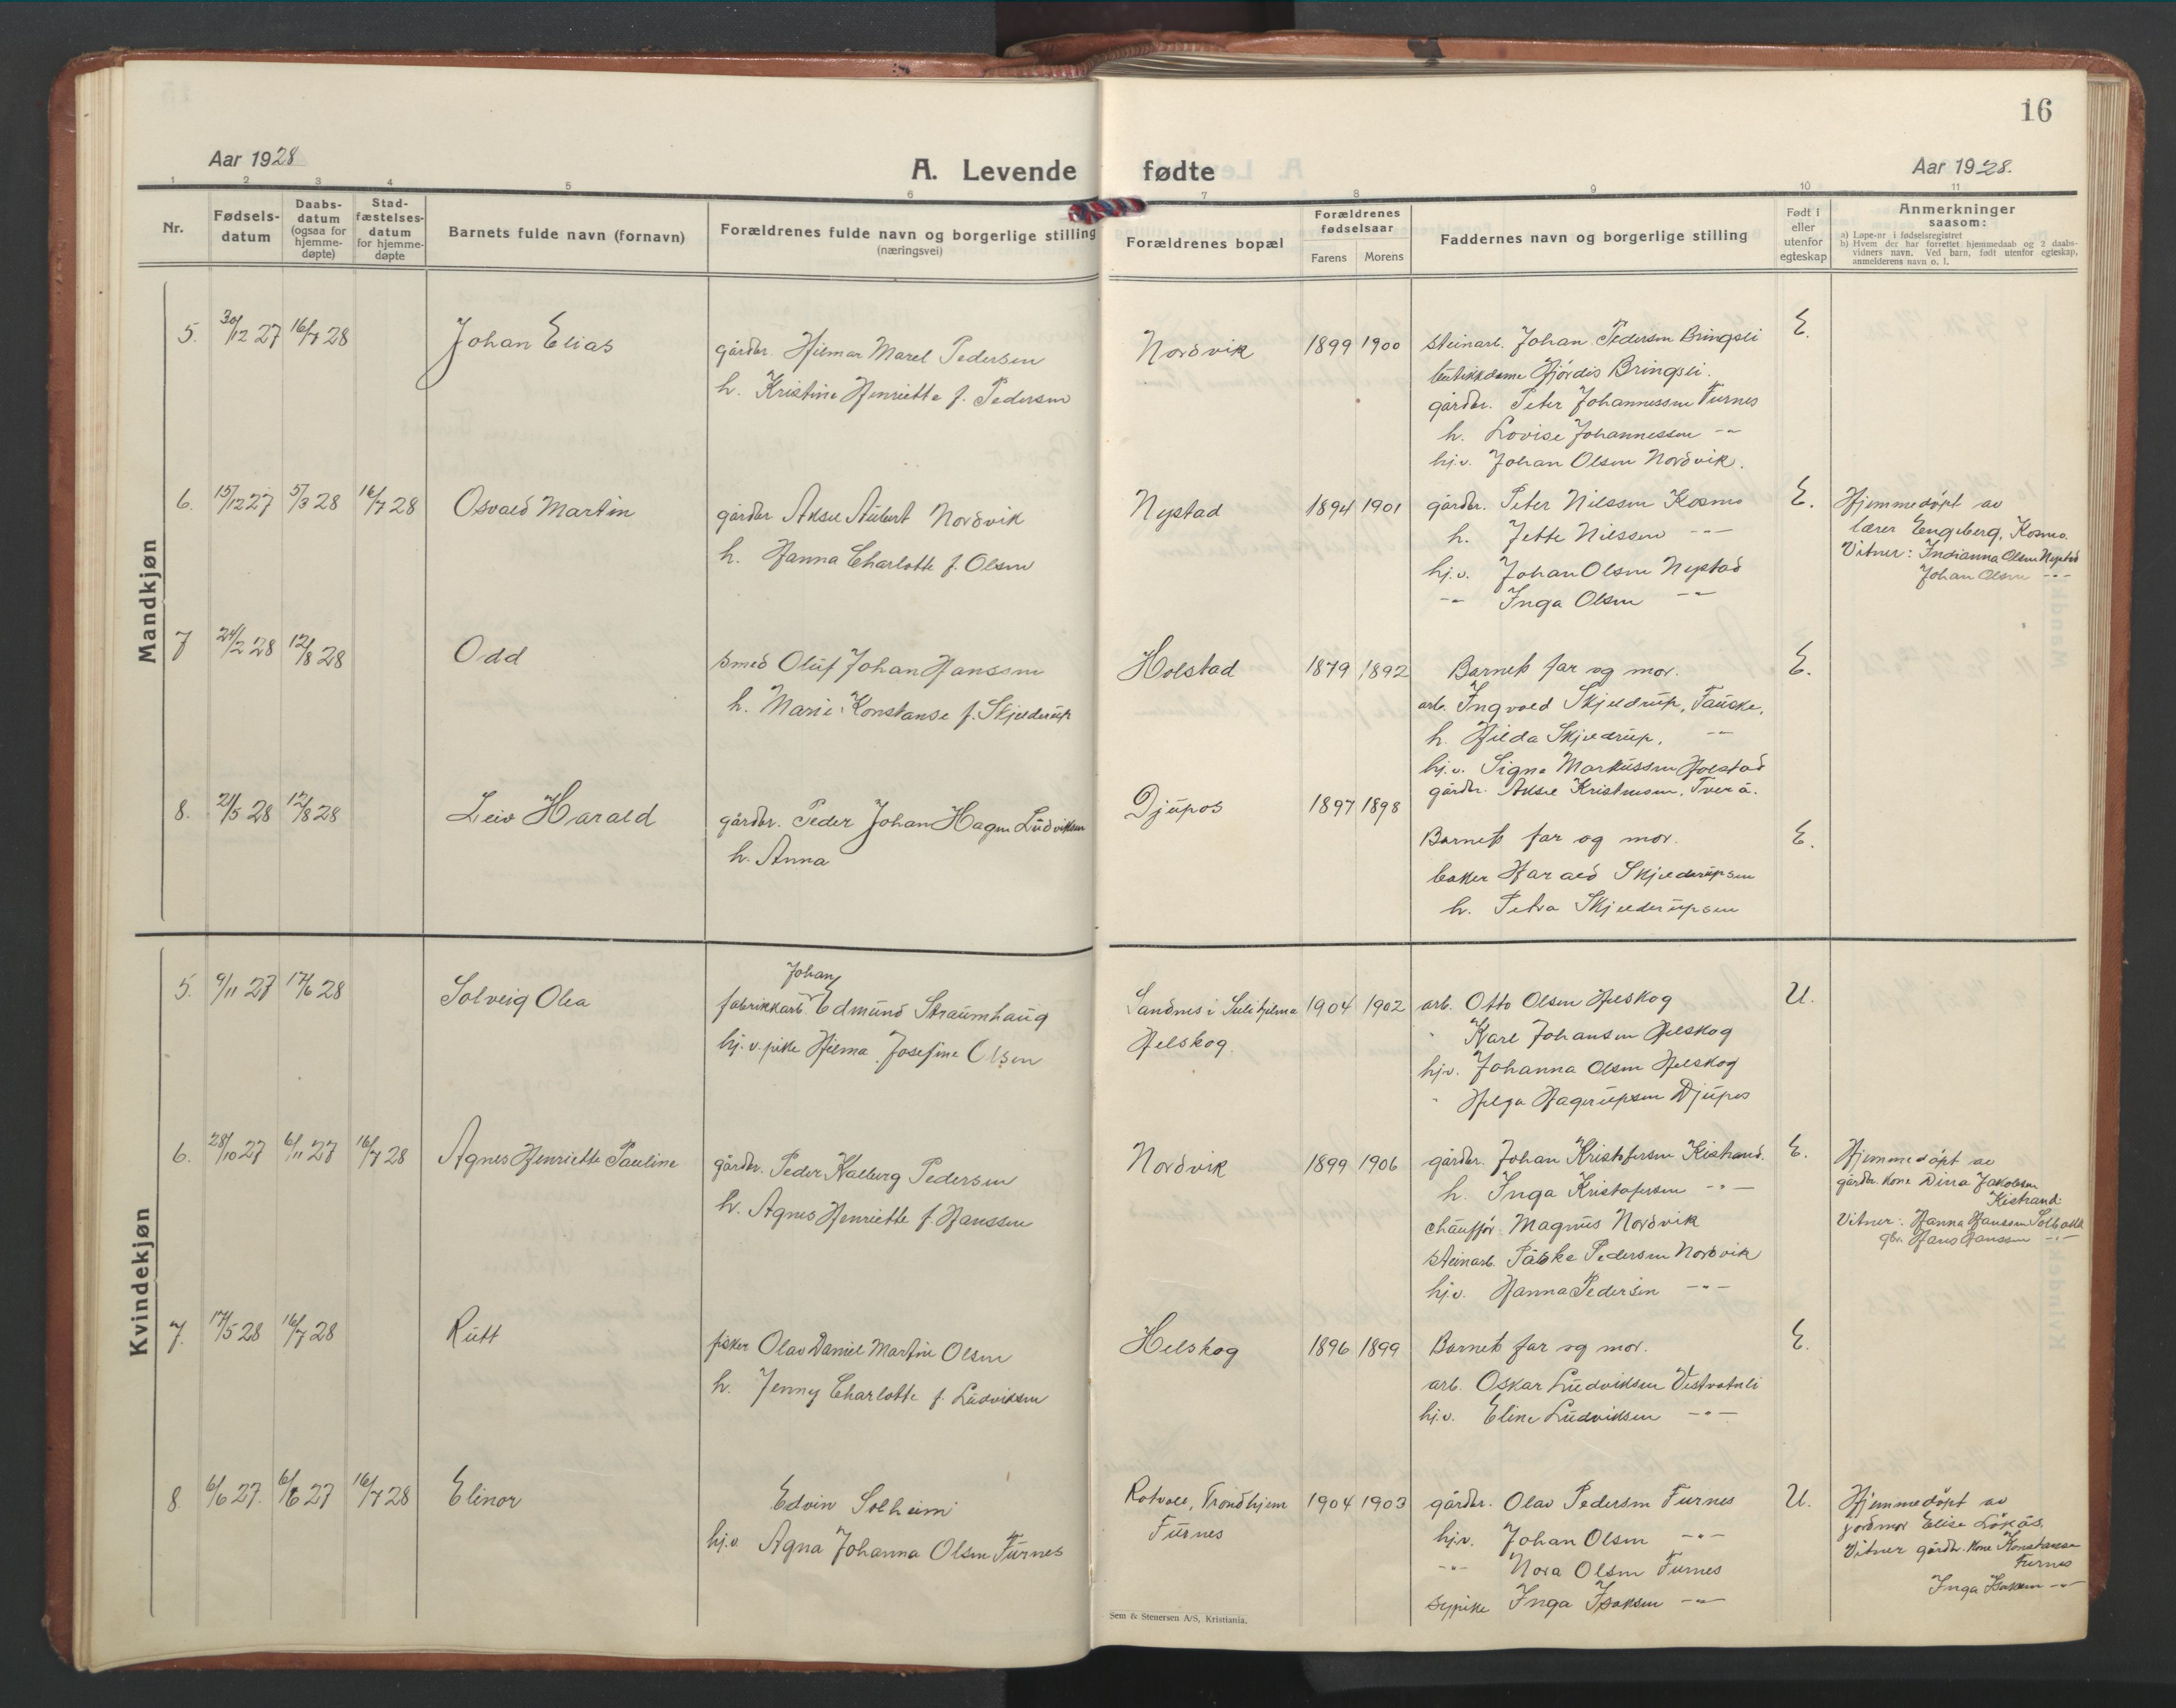 16
Aar 1928
A. Levende fødte
Aar 1928.
1 2 3 4 5 6 7 8 9 10 11
Nr.
Fødsels-
datum
Daabs-
datum
(ogsaa for
hjemme-
døpte)
Stad-
fæstelses-
datum
for hjemme-
døpte
Barnets fulde navn (fornavn)
Forældrenes fulde navn og borgerlige stilling
(næringsvei)
Forældrenes bopæl
Forældrenes
fødselsaar
Farens Morens
Faddernes navn og borgerlige stilling
Født i
eller
utenfor
egteskap
Anmerkninger
saasom:
a) Løpe-nr i fødselsregistret
b) Hvem der har forrettet hjemmedaab og 2 daabs-
vidners navn. Ved barn, født utenfor egteskap,
anmelderens navn o. l.
Mandkjøn
5. 30/12 27 16/7 28 Johan Elias
gårdbr. Hilmar Marel Pedersen
h. Kristine Henriette f. Pedersen
Nordvik 1899 1900
steinarb. Johan Pedersen Bringsli
butikkdame Hjördis Bringsli.
gårdbr. Peter Johannessen Furnes
h. Lovise Johannessen -"-
hj.v. Johan Olsen Nordvik.
E.
6. 15/12 27 5/3 28 16/7 28 Osvald Martin
gårdbr Aksel Aubert Nordvik
h. Hanna Charlotte f. Olsen
Nystad 1894 1901
gårdbr. Peter Nilssen Kosmo
h. Jette Nilssen -"-
hj.v. Johan Olsen Nystad
-"- Inga Olsen -"-
E.
Hjemmedöpt av
lærer Engeberg, Kosmo.
Vitner: Indianna Olsen Nystad
Johan Olsen -"-
7 24/2 28 12/8 28 Odd
smed Oluf Johan Hanssen
h. Marie Konstanse f. Skjelderup
Holstad 1879 1892
Barnets far og mor.
arb. Ingvald Skjeldrup, Fauske.
h. Hilda Skjeldrup, -"-
hj.v. Signe Markussen Holstad
gårdbr. Aksel Kristensen, Tverå.
E.
8. 21/5 28 12/8 28 Leiv Harald
gårdbr. Peder Johan Hagen Ludviksen
h. Anna
Djupos 1897 1898
Barnets far og mor.
baker Harald Skjelderupsen
h. Petra Skjelderupsen
E.
Kvindekjøn
5. 9/11 27 17/6 28 Solveig Olea
Johan
fabrikkarb. Edmund Straumhaug
hj.v. pike Hilma Josefine Olsen
Sandnes i Sulitjelma 1904 1902
Helskog.
arb. Otto Olsen Helskog
" Karl Johansen Helskog
hj.v. Johanna Olsen Helskog
" Helga Hagerupsen Djupos
U.
6. 28/10 27 6/11 27 16/7 28 Agnes Henriette Pauline
gårdbr. Peder Kalberg Pedersen
h. Agnes Henriette f. Hanssen
Nordvik 1899 1906
gårdbr. Johan Kristofersen Kistrand.
h. Inga Kristofersen -"-
chaufför Magnus Nordvik
steinarb. Påske Pedersen Nordvik
hj.v. Hanna Pedersen -"-
E.
Hjemmedöpt av
gårdbr. kone Dina Jakobsen
Kistrand.
Vitner: Hanna Hanssen Solbakk
gbr. Hans Hanssen -"-
7. 17/5 28 16/7 28 Rutt
fisker Olav Daniel Martin Olsen
h. Jenny Charlotte f. Ludviksen
Helskog 1896 1899
Barnets far og mor.
arb. Oskar Ludviksen Vestvatnli
hj.v. Eline Ludviksen -"-
E.
8. 6/6 27. 6/6 27 16/7 28 Elinor
Edvin Solheim
hj.v. Agna Johanna Olsen Furnes
Rotvoll, Trondhjem 1904 1903
Furnes
gårdbr. Olav Pedersen Furnes
hj.v. Johan Olsen -"-
-"- Nora Olsen Furnes
sypike Inga Isaksen -"-
U.
Hjemmedöpt av
jordmor Elise Lökås.
Vitner gårdbr. kone Konstanse
Furnes
Inga Isaksen -"-
Sem & Stenersen A/S, Kristiania.